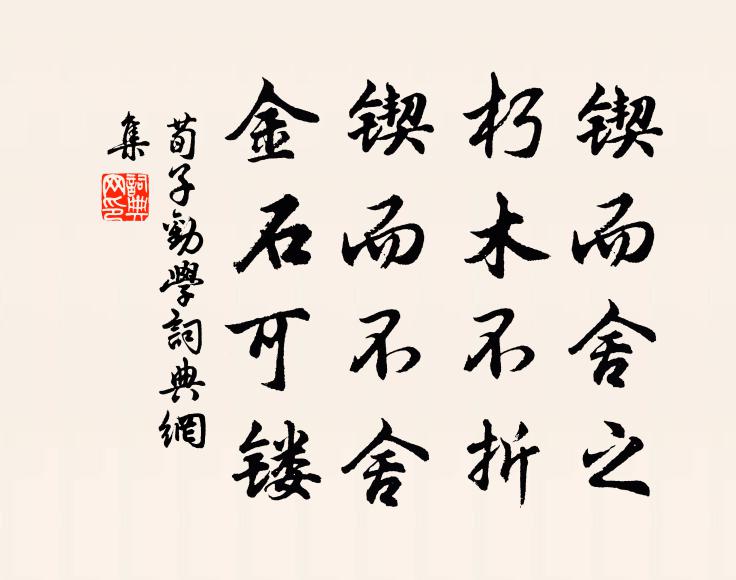 锲而舍之
朽木不折
锲而不舍
金石可镂
荀子勸學詞典網
集
詞典
网印